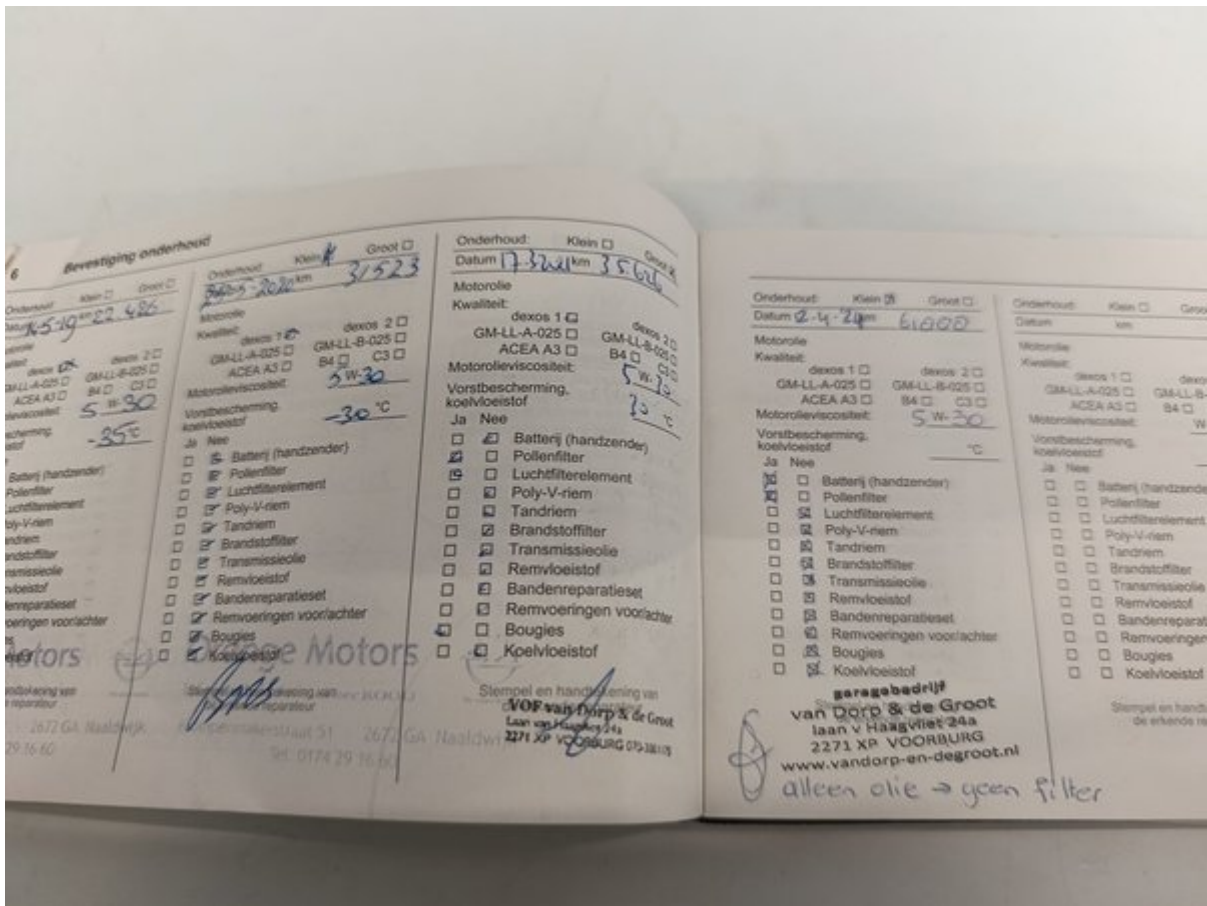 6 Bevestiging onderhoud
Onderhoud: Klein Groot
22.426
dexos 2
GM-LL-A-025 GM-LL-B-025
ACEA A3 B4 C3
5 W-30
-35°C
Batterij (handzender)
Pollenfilter
Luchtfilterelement
Poly-V-riem
Tandriem
Brandstoffilter
Transmissieolie
Onderhoud: Klein Groot
2020 km 31523
Motorolie
Kwaliteit:
dexos 1 dexos 2
GM-LL-A-025 GM-LL-B-025
ACEA A3 B4 C3
Motorolieviscositeit: 5 W-30
Vorstbescherming,
koelvloeistof -30 °C
Ja Nee
Batterij (handzender)
Pollenfilter
Luchtfilterelement
Poly-V-riem
Tandriem
Brandstoffilter
Transmissieolie
Remvloeistof
Bandenreparatieset
Remvoeringen voor/achter
Bougies
Koelvloeistof
Motors
2672 GA Naaldwijk
Tel. 0174 29 16 60
Onderhoud: Klein Groot
Datum 17-3-2021 km 35626
Motorolie
Kwaliteit:
dexos 1 dexos 2
GM-LL-A-025 GM-LL-B-025
ACEA A3 B4 C3
Motorolieviscositeit: 5 W-30
Vorstbescherming,
koelvloeistof 30 °C
Ja Nee
Batterij (handzender)
Pollenfilter
Luchtfilterelement
Poly-V-riem
Tandriem
Brandstoffilter
Transmissieolie
Remvloeistof
Bandenreparatieset
Remvoeringen voor/achter
Bougies
Koelvloeistof
Stempel en handtekening van
VOF van Dorp & de Groot
Laan van Haagvliet 24a
2271 XP VOORBURG
Onderhoud: Klein Groot
Datum 2-4-24 km 61000
Motorolie
Kwaliteit:
dexos 1 dexos 2
GM-LL-A-025 GM-LL-B-025
ACEA A3 B4 C3
Motorolieviscositeit: 5 W-30
Vorstbescherming,
koelvloeistof °C
Ja Nee
Batterij (handzender)
Pollenfilter
Luchtfilterelement
Poly-V-riem
Tandriem
Brandstoffilter
Transmissieolie
Remvloeistof
Bandenreparatieset
Remvoeringen voor/achter
Bougies
Koelvloeistof
garagebedrijf
van Dorp & de Groot
laan v Haagvliet 24a
2271 XP VOORBURG
www.vandorp-en-degroot.nl
alleen olie → geen filter
Onderhoud: Klein
Datum km
Motorolie
Kwaliteit:
dexos 1
GM-LL-A-025
ACEA A3 B4
Motorolieviscositeit: W
Vorstbescherming,
koelvloeistof
Ja Nee
Pollenfilter
Luchtfilterelement
Poly-V-riem
Tandriem
Brandstoffilter
Transmissieolie
Remvloeistof
Remvoeringen
Bougies
Koelvloeistof